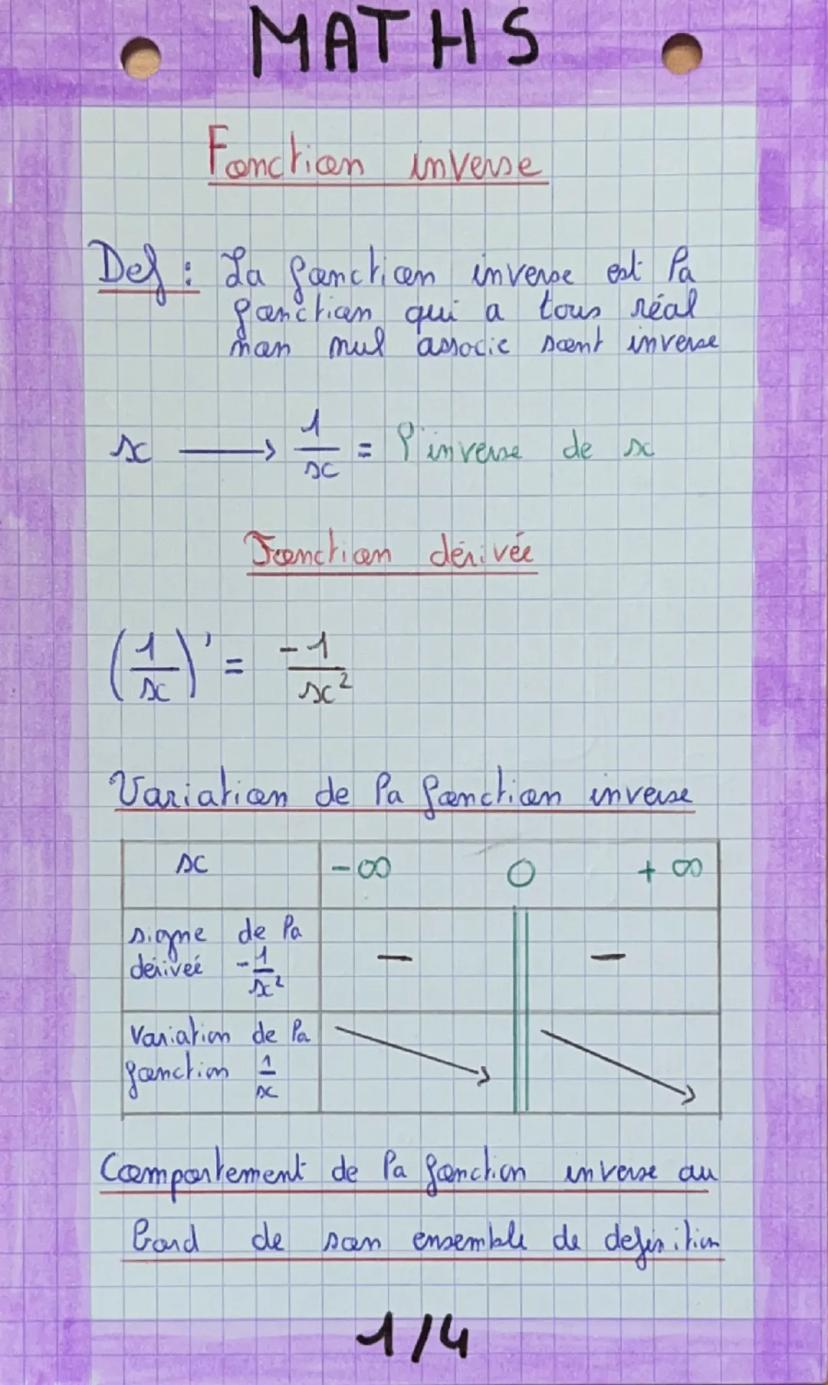 MATHS
Fonction inverse
Def : La fonction inverse est la
fonction qui a tous réal
non nul associe sont inverse
x ⟶ 1/x = l'inverse de x
Fonction dérivée
(1/x)' = -1/x²
Variation de la fonction inverse
x -∞ 0 + ∞
signe de la
dérivée -1/x² − −
Variation de la
fonction 1/x
Comportement de la fonction inverse au
bord de son ensemble de definition
1/4